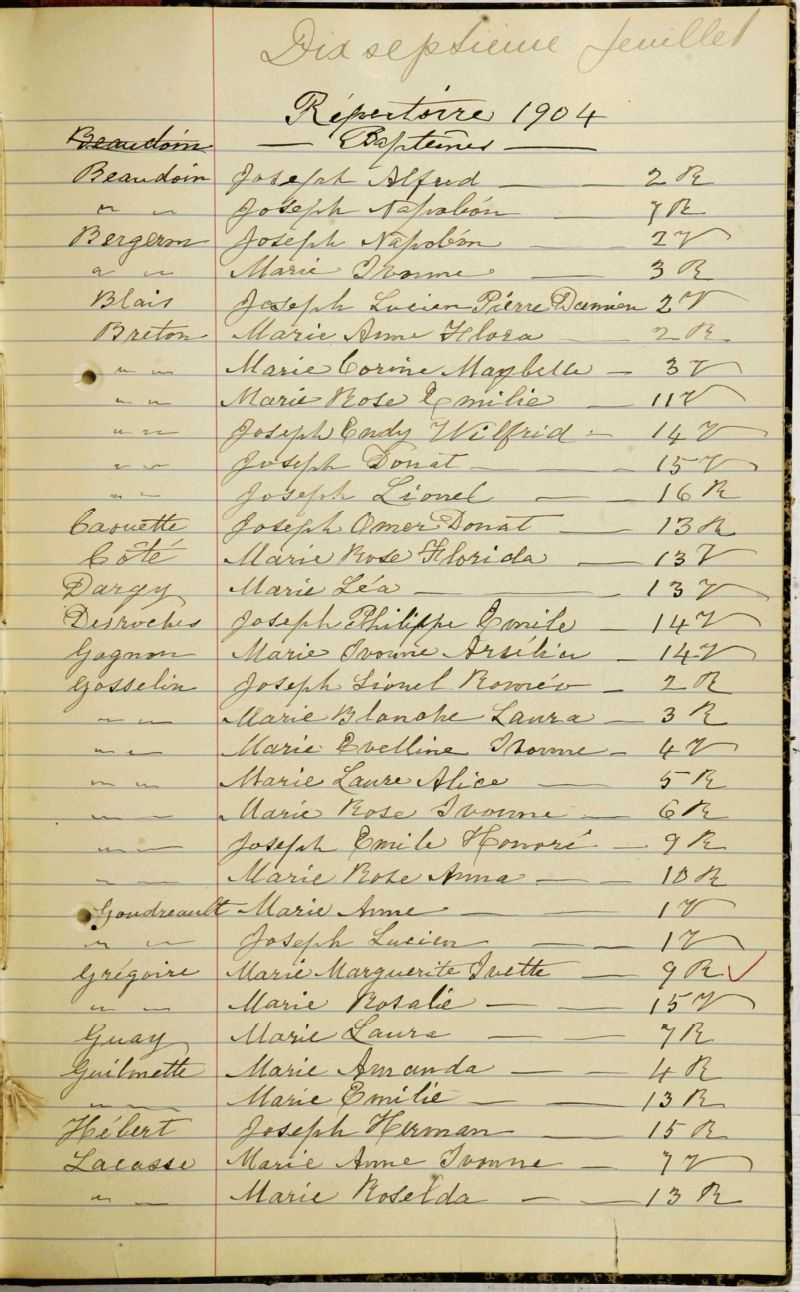 Dix septieme feuillet
Répertoire 1904
Beaudoin — Baptêmes —
Beaudoin Joseph Alfred — — 2 R
" " Joseph Napoléon — 7 R
Bergeron Joseph Napoléon — — 2 V
" " Marie Ivonne — 3 R
Blais Joseph Lucien Pierre Damien 2 V
Breton Marie Anne Flora — — 2 R
" " Marie Corine Maybelle — 3 V
" " Marie Rose Emilie — 11 V
" " Joseph Endy Wilfrid — 14 V
" " Joseph Donat — — 15 V
" " Joseph Lionel — — 16 R
Caouette Joseph Omer Donat — 13 R
Côté Marie Rose Florida — 13 V
Dargy Marie Léa — — — 13 V
Desroches Joseph Philippe Emile — 14 V
Gagnon Marie Ivonne Arsélia — 14 V
Gosselin Joseph Lionel Roméo — 2 R
" " Marie Blanche Laura — 3 R
" " Marie Evelline Ivonne — 4 V
" " Marie Laure Alice — 5 R
" " Marie Rose Ivonne — 6 R
" " Joseph Emile Honoré — 9 R
" " Marie Rose Anna — — 10 R
Goudreault Marie Anne — — 1 V
" " Joseph Lucien — — 1 V
Grégoire Marie Marguerite Ivette — 9 R ✓
" " Marie Rosalie — — 15 V
Guay Marie Laura — — 7 R
Guilmette Marie Amanda — — 4 R
" " Marie Emilie — — 13 R
Hébert Joseph Herman — — 15 R
Lacasse Marie Anne Ivonne — 7 V
" " Marie Roselda — — 13 R